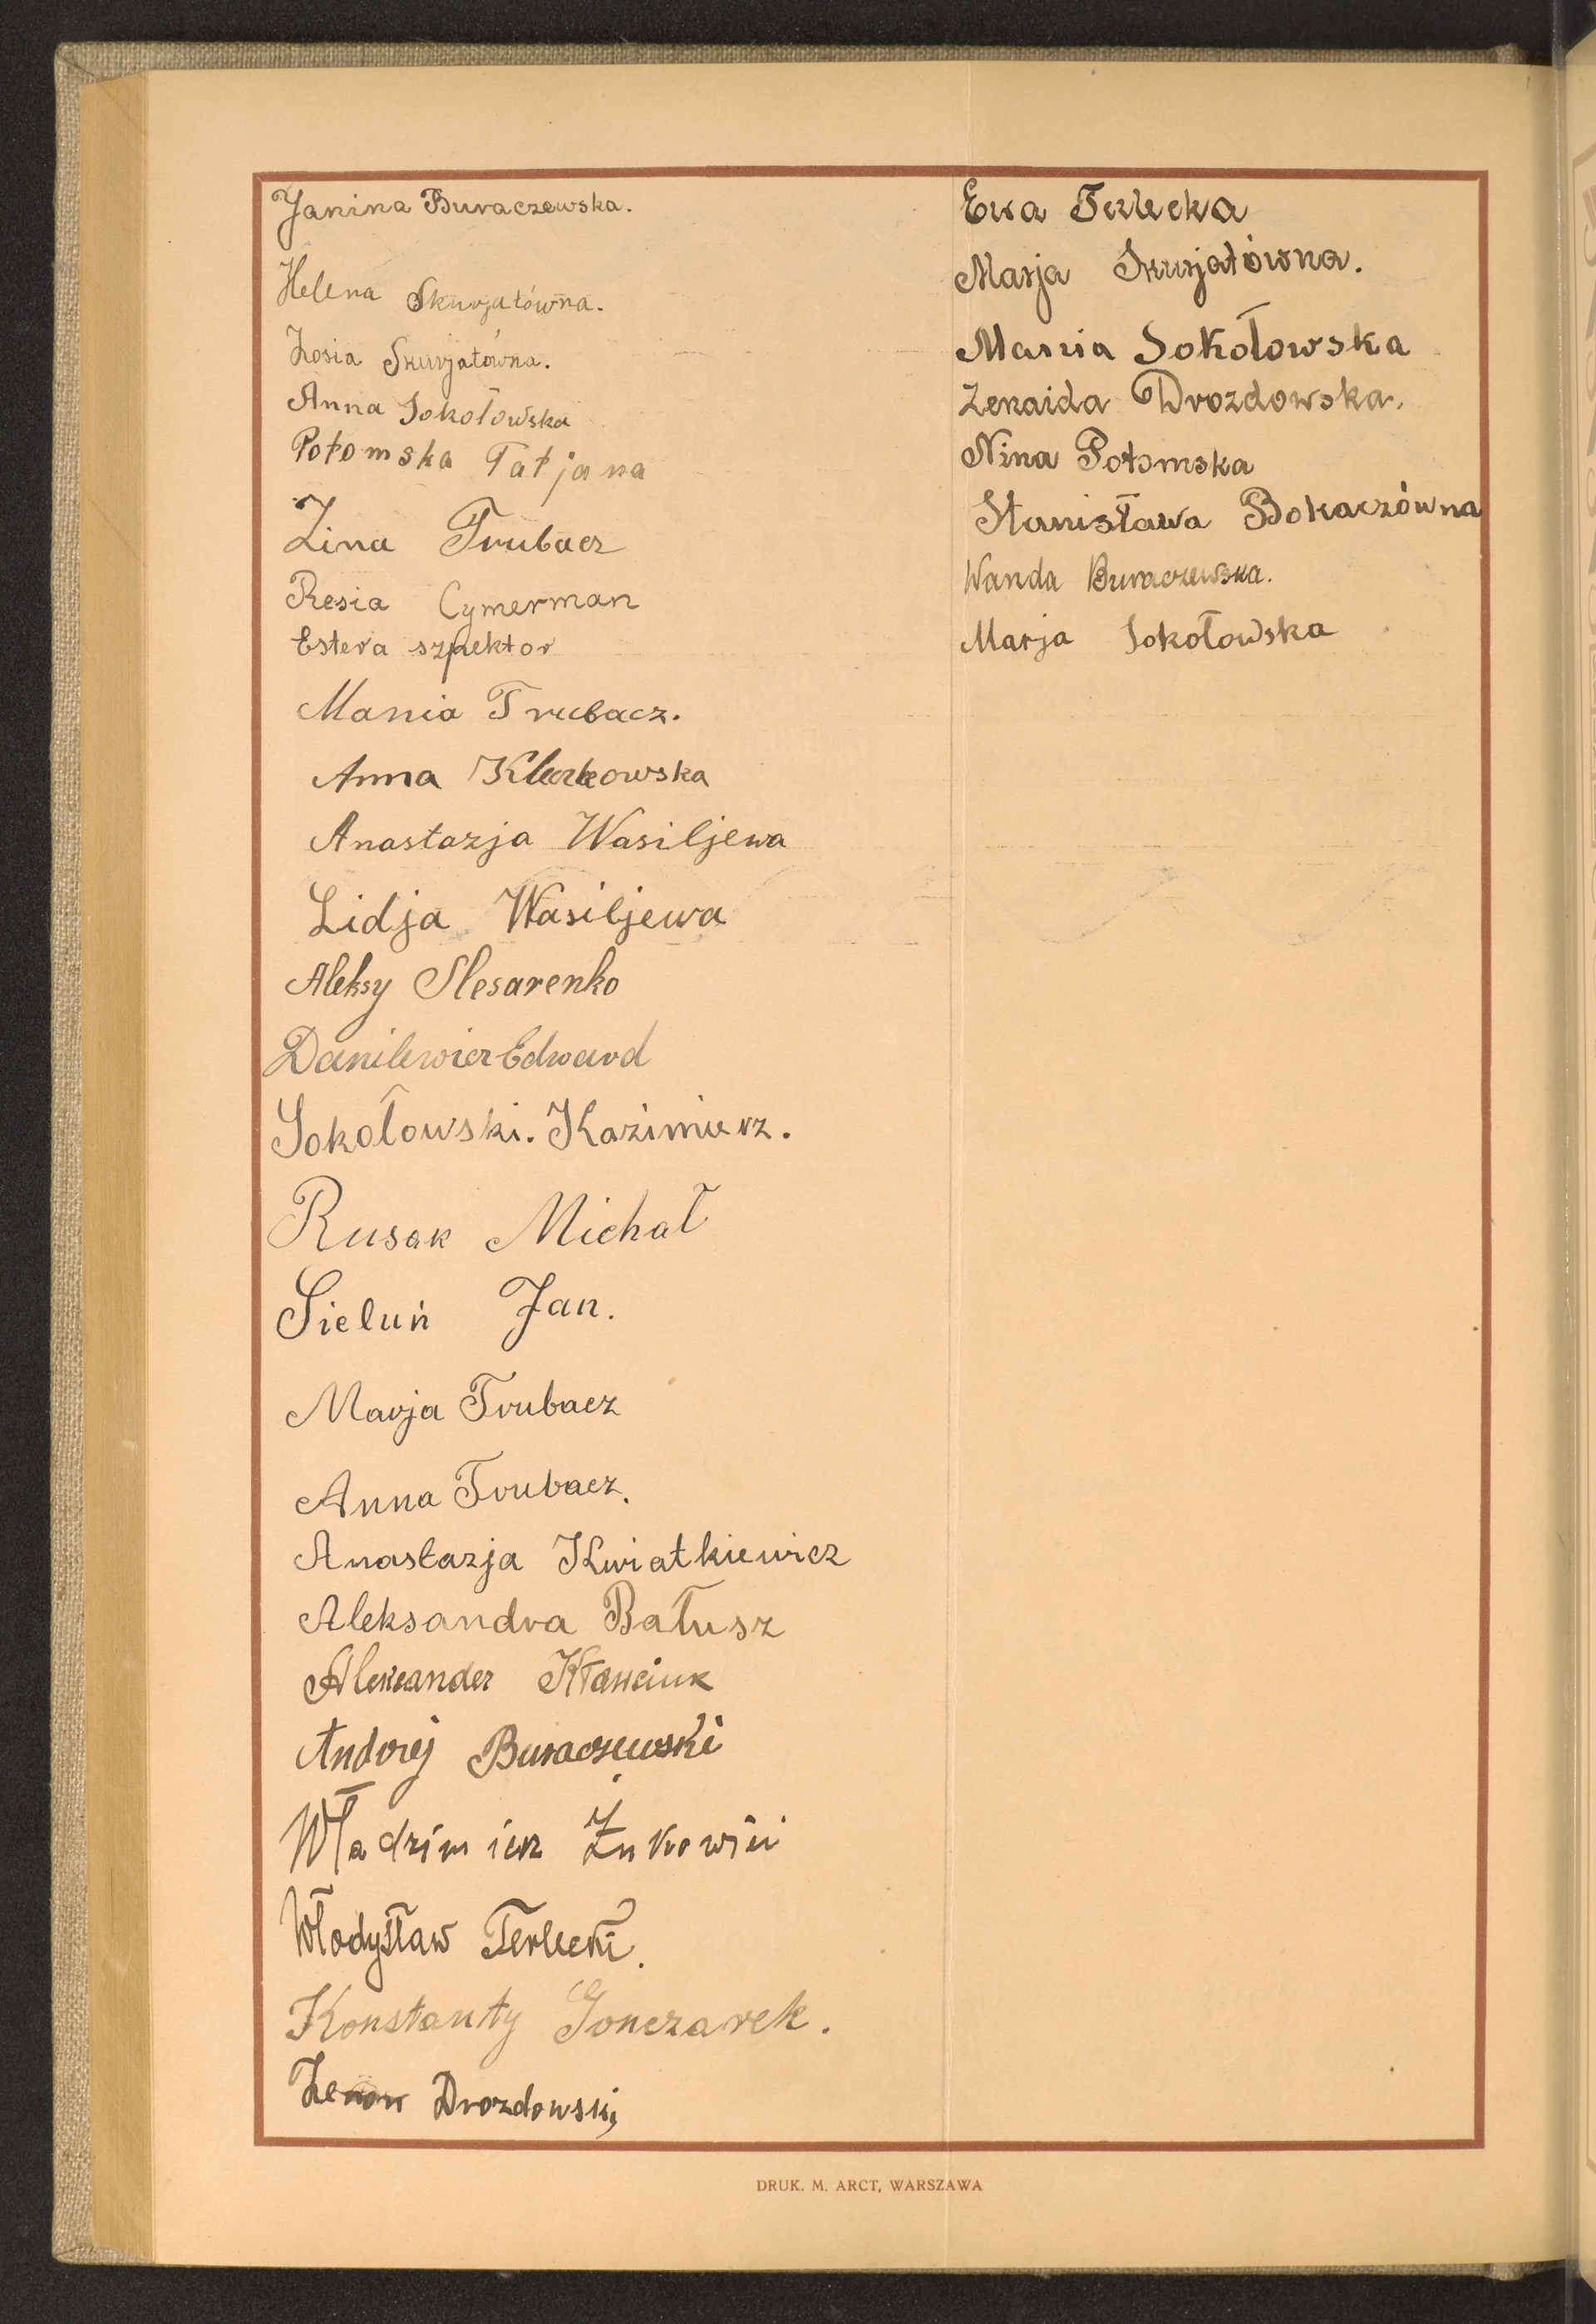 Janina Buraczewska.
Helena Skurjatówna.
Zosia Skurjatówna.
Anna Sokołowska
Potomska Tatjana
Zina Trubacz
Resia Cymerman
Estera szpektor
Mania Trubacz.
Anna Klezkowska
Anastazja Wasiljewa
Lidja Wasiljewa
Aleksy Slesarenko
Danilewicz Edward
Sokołowski. Kazimierz.
Rusak Michał
Sieluń Jan.
Marja Trubacz
Anna Trubacz.
Anastazja Kwiatkiewicz
Aleksandra Bałusz
Aleksander Kławciuk
Andrzej Buraczewski
Władzimierz Żukowici
Włodysław Terlecki.
Konstanty Gonczarek.
Zenon Drozdowski,
Ewa Terlecka
Marja Skurjatówna.
Mania Sokołowska
Zenaida Drozdowska.
Nina Potomska
Stanisława Bokaczówna
Wanda Buraczewska.
Marja Sokołowska
DRUK. M. ARCT, WARSZAWA